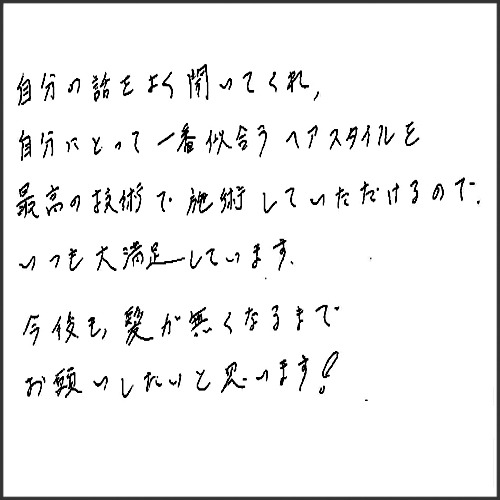 自分の話をよく聞いてくれ,
自分にとって一番似合うヘアスタイルを
最高の技術で施術していただけるので.
いつも大満足しています.
今後も,髪が無くなるまで
お願いしたいと思います!